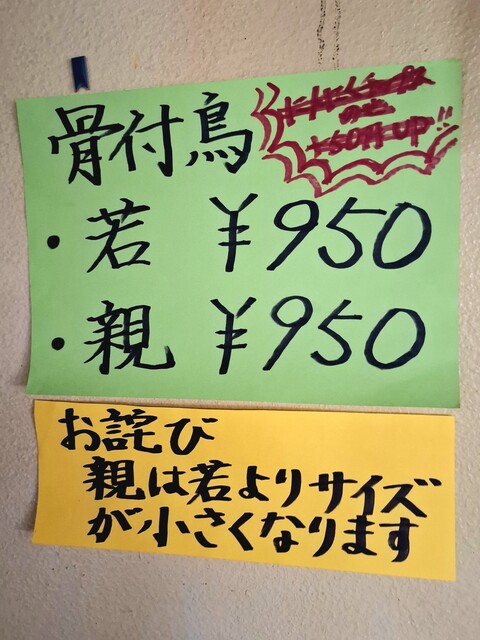 骨付鳥
・若 ¥950
・親 ¥950
お詫び
親は若よりサイズ
が小さくなります